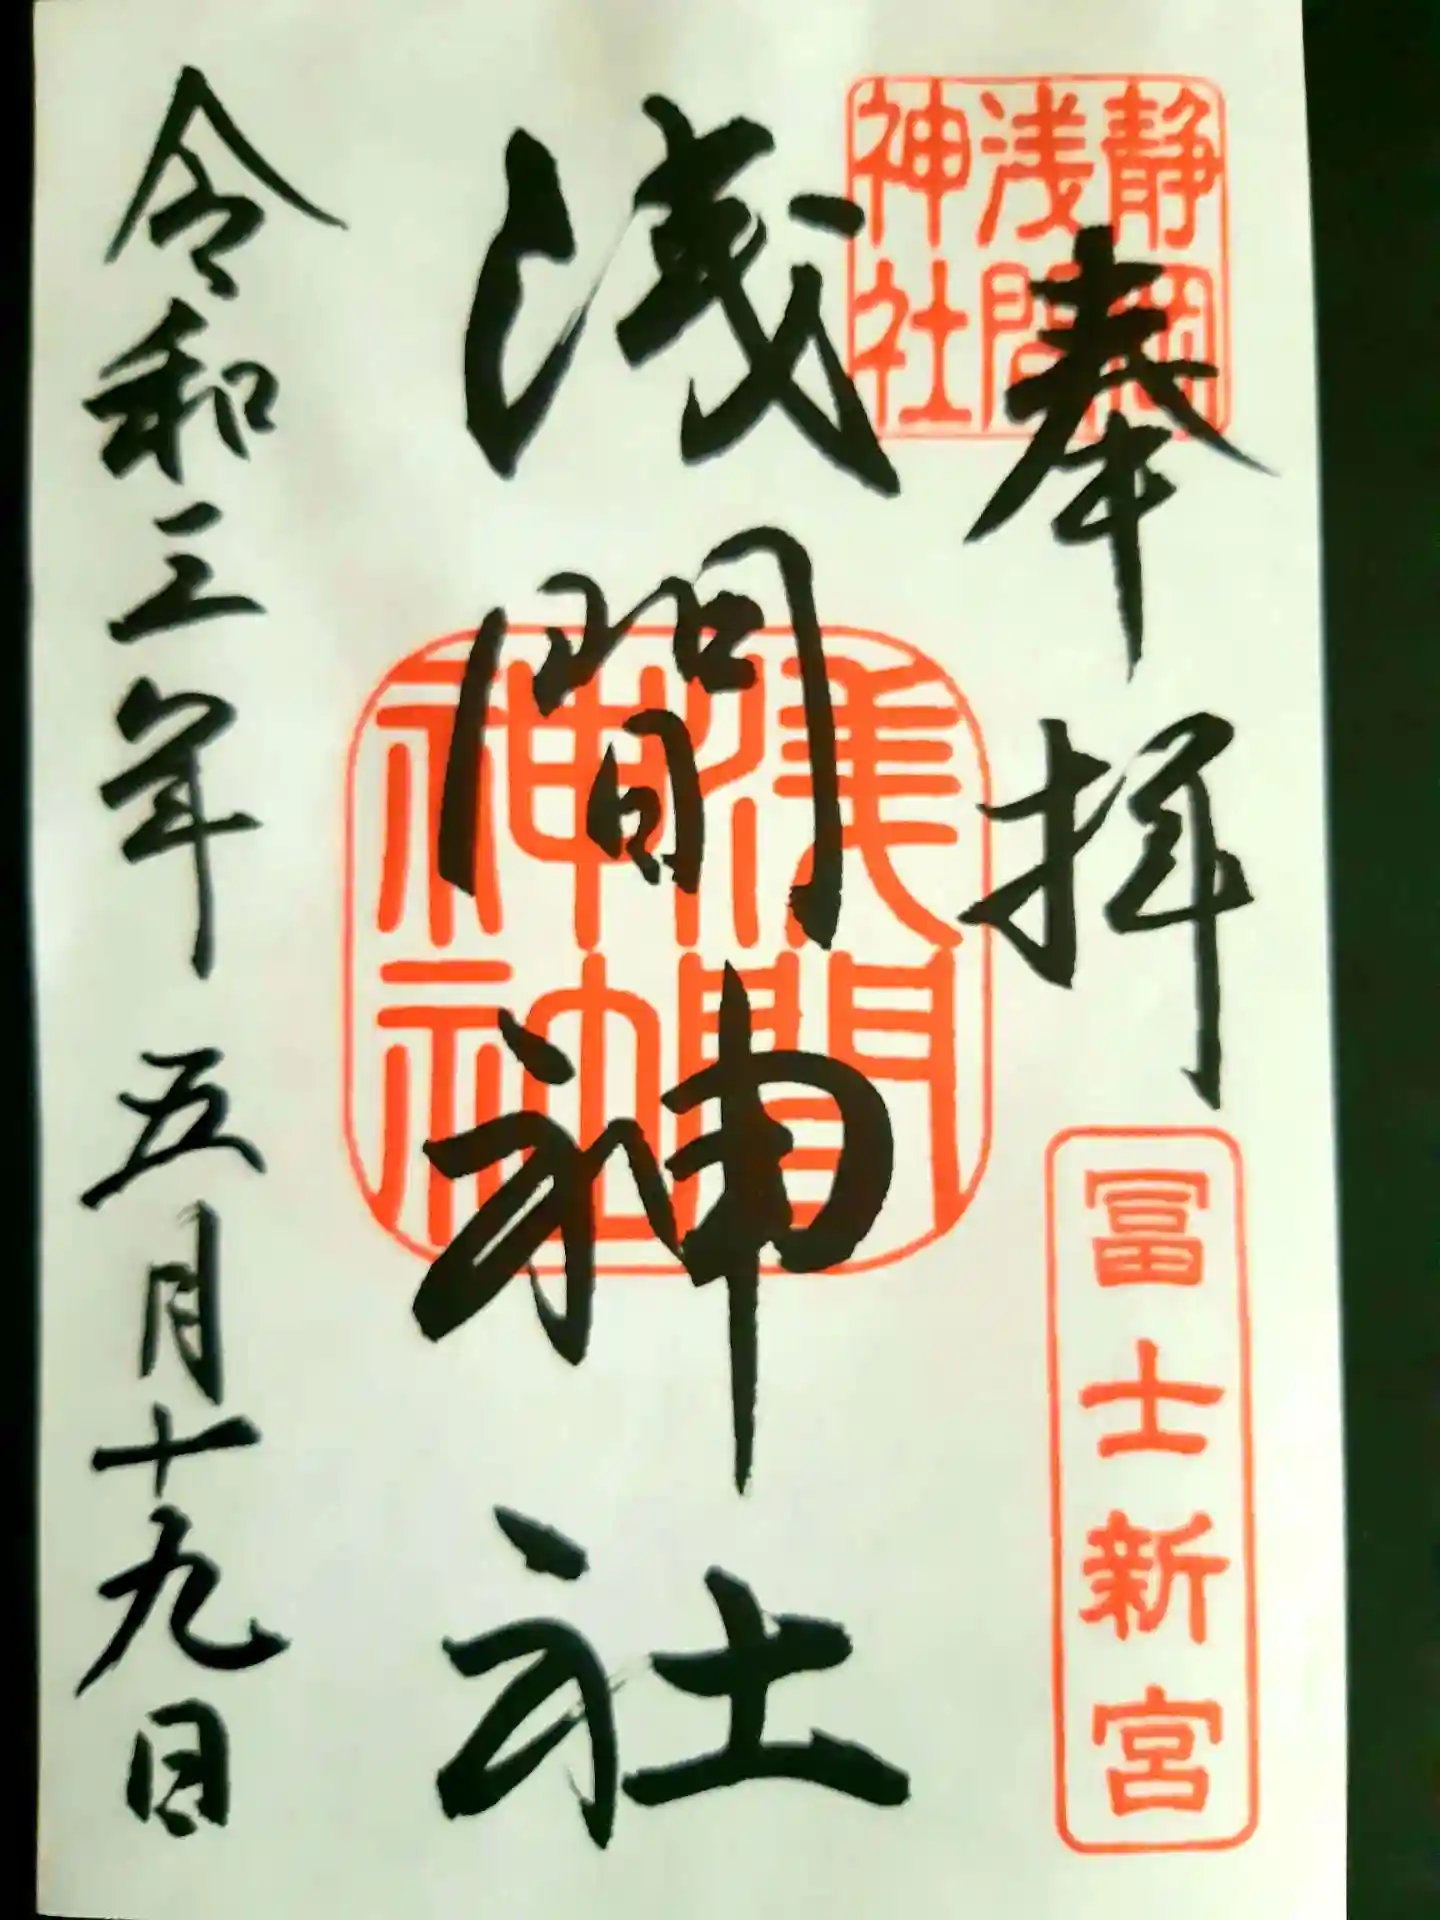 静岡
浅間
神社
奉拝
冨士新宮
浅間神社
浅間
神社
令和三年 五月十九日